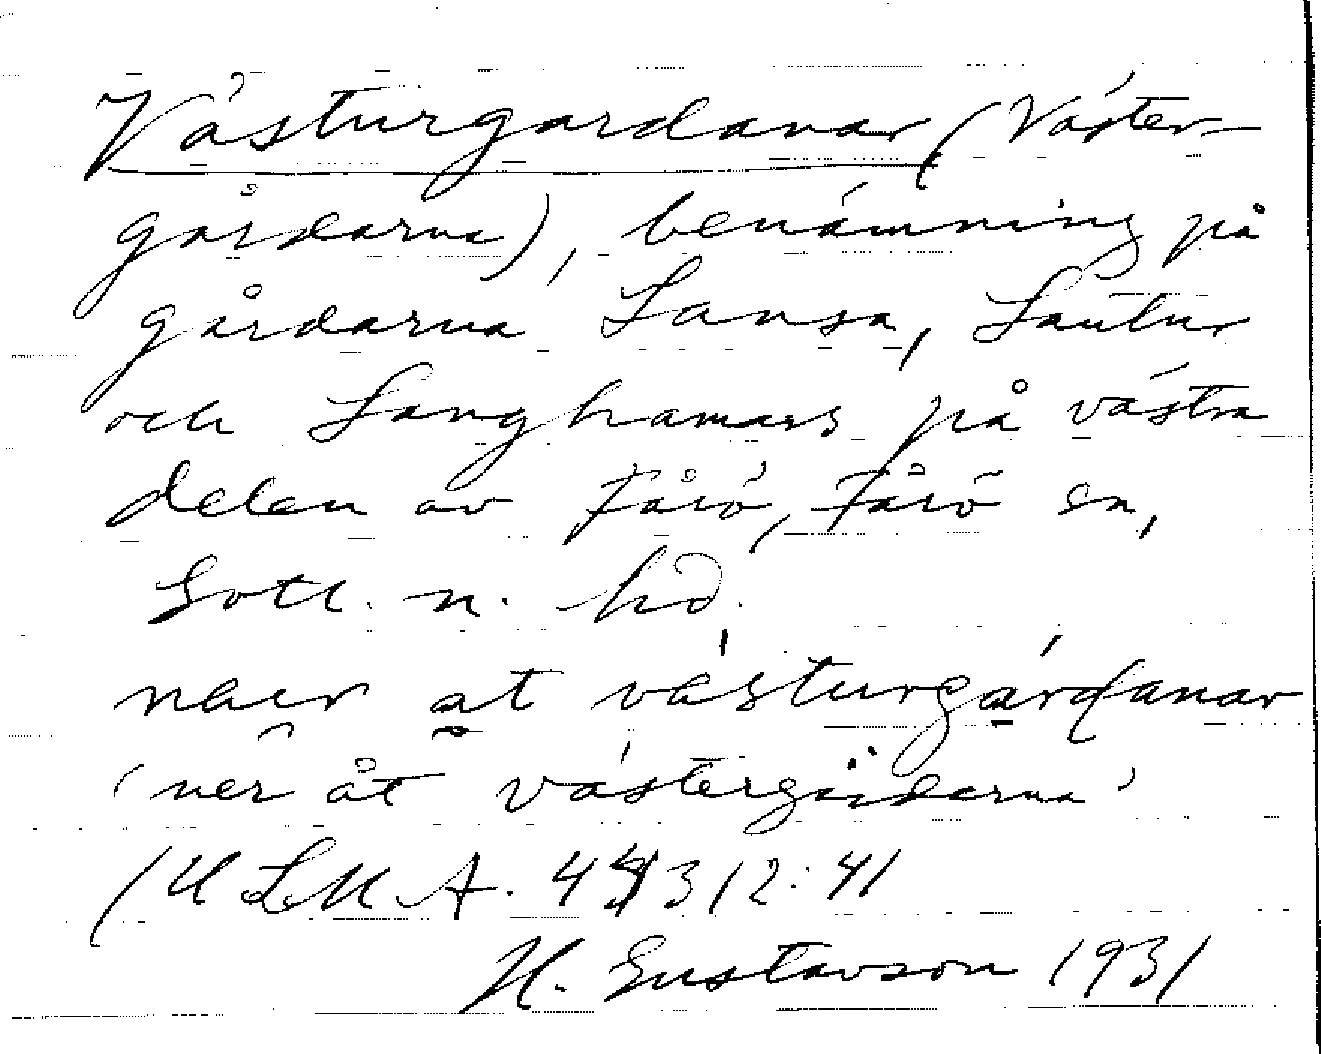 Västurgardanar (Väster-
gårdarna), benämning på
gårdarna Lansa, Lautur
och Langhamars på västra
delen av Fårö, Fårö sn,
Gotl. n. hd.
nair at västurgardanar
'ner åt västergårdarna'
(ULMA. 312:41
H. Gustavson 1931